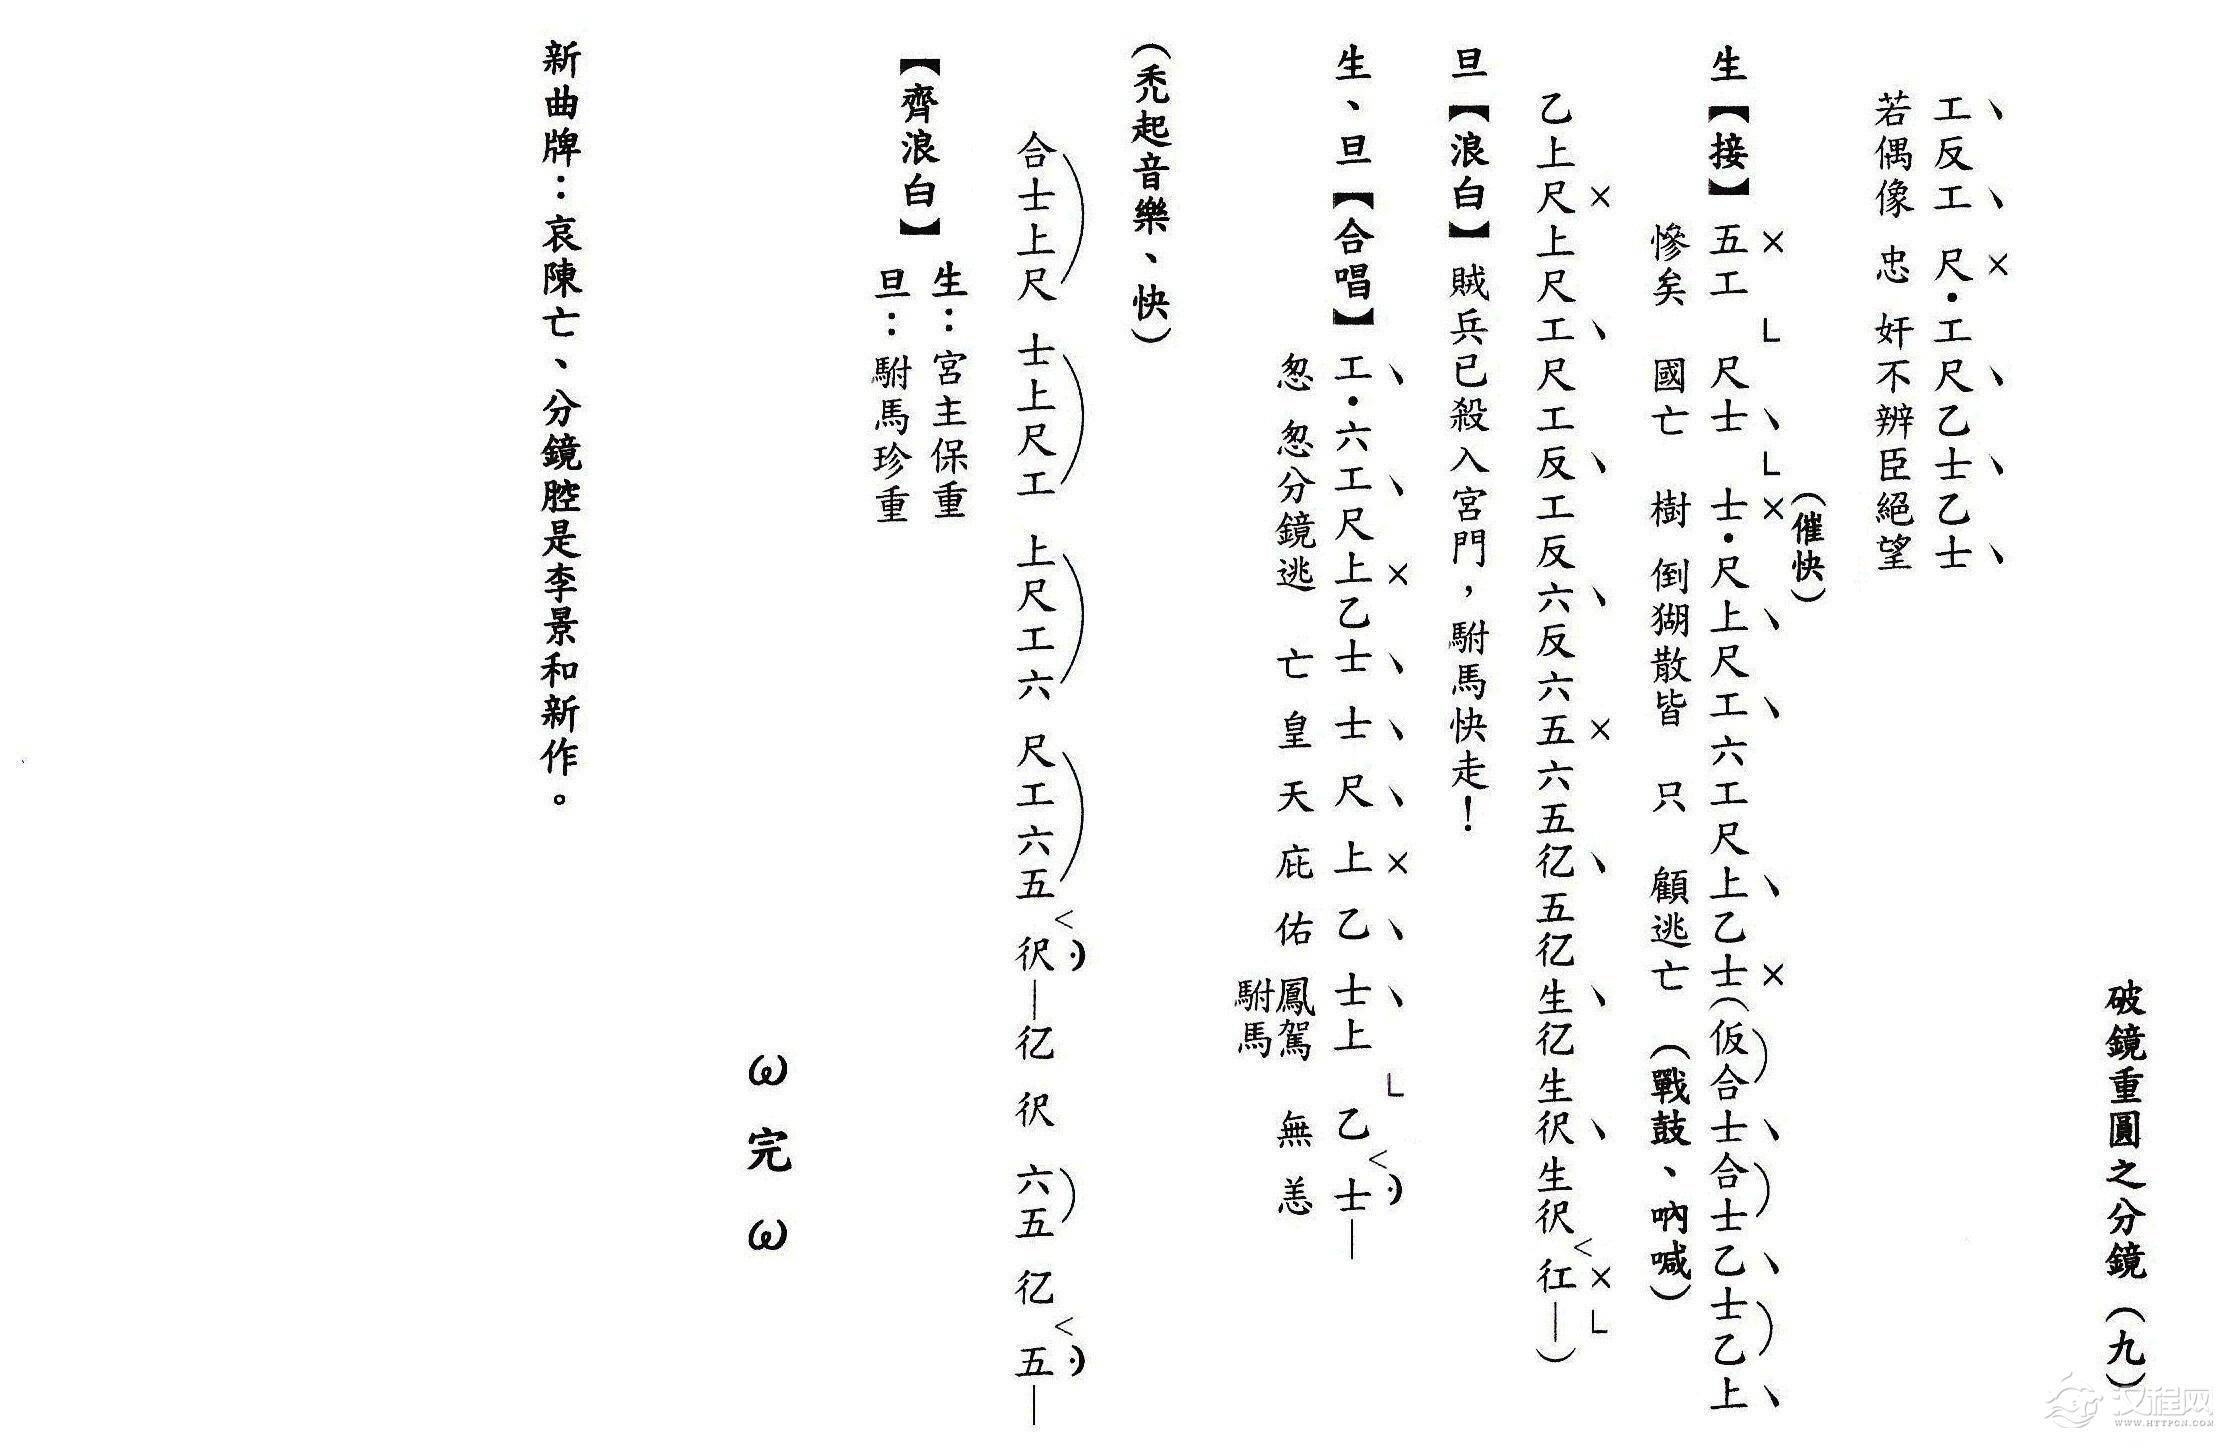 破鏡重圓之分鏡（九）
工反工尺•工尺乙士乙士
若偶像忠奸不辨臣絕望
（催快）
生【接】五工尺士士•尺上尺工六工尺上乙士（仮合士合士乙士乙上
慘矣國亡樹倒猢散皆只顧逃亡（戰鼓、吶喊）
乙上尺上尺工尺工反工反六反六五六五彳乙五彳乙生彳乙生彳尺生彳尺彳工—）
旦【浪白】賊兵已殺入宮門，駙馬快走！
生、旦【合唱】工•六工尺上乙士士尺上乙士上乙士—
怱怱分鏡逃亡皇天庇佑鳳駕無恙
駙馬
（禿起音樂、快）
合士上尺士上尺工上尺工六尺工六五伬—亿伬六五亿五—
【齊浪白】生：宮主保重
旦：駙馬珍重
ω完ω
新曲牌：哀陳亡、分鏡腔是李景和新作。
汉程网
WWW.HTTPCN.COM